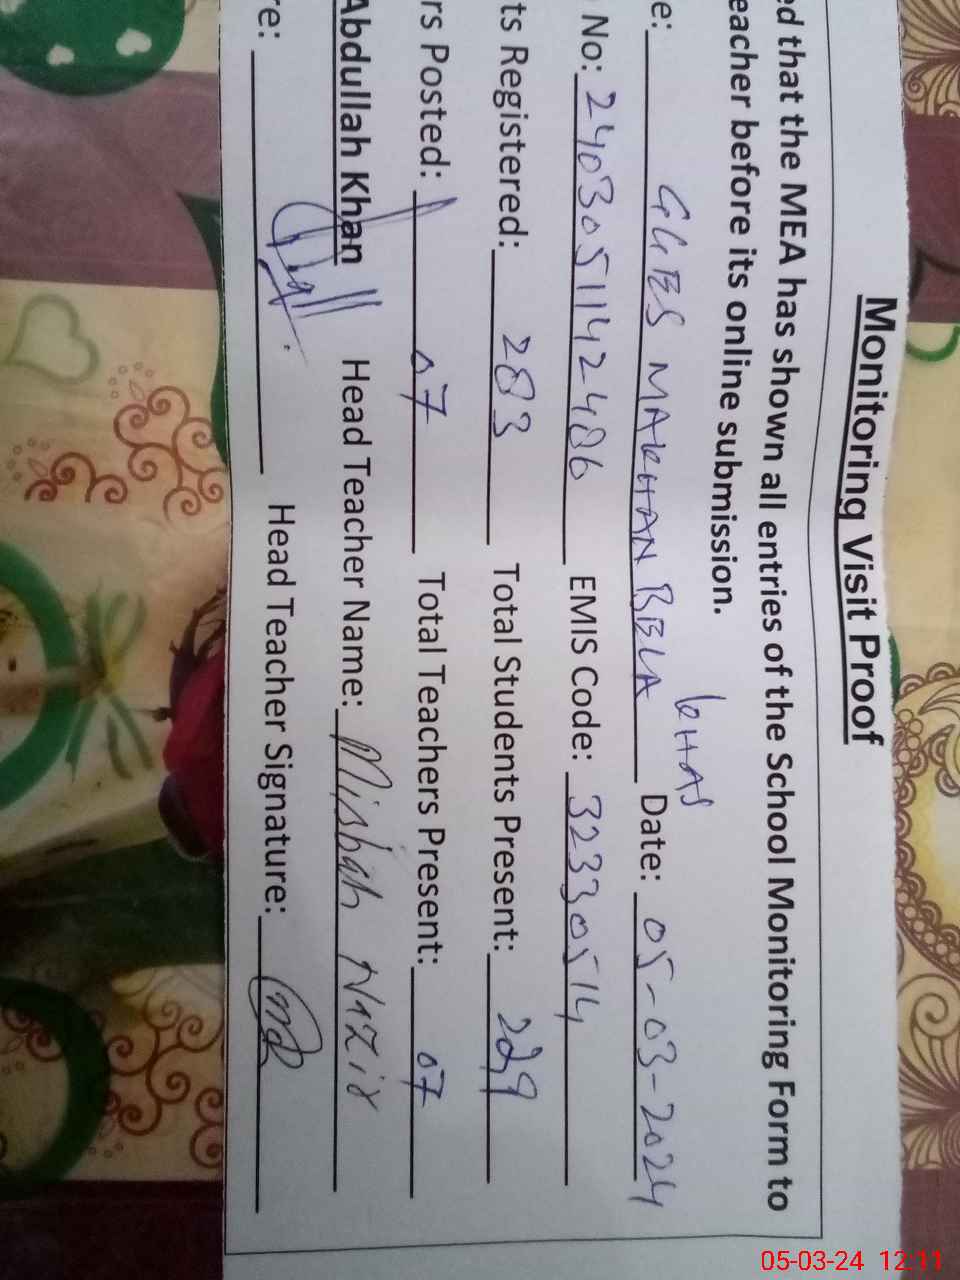 Monitoring Visit Proof
ed that the MEA has shown all entries of the School Monitoring Form to
eacher before its online submission.
KHAS
e: GGES MAKHAN BELA Date: 05-03-2024
No: 2403051142486 EMIS Code: 32330514
ts Registered: 283 Total Students Present: 229
rs Posted: 07 Total Teachers Present: 07
Abdullah Khan Head Teacher Name: Misbah Nazir
re: Head Teacher Signature:
05-03-24 12:11